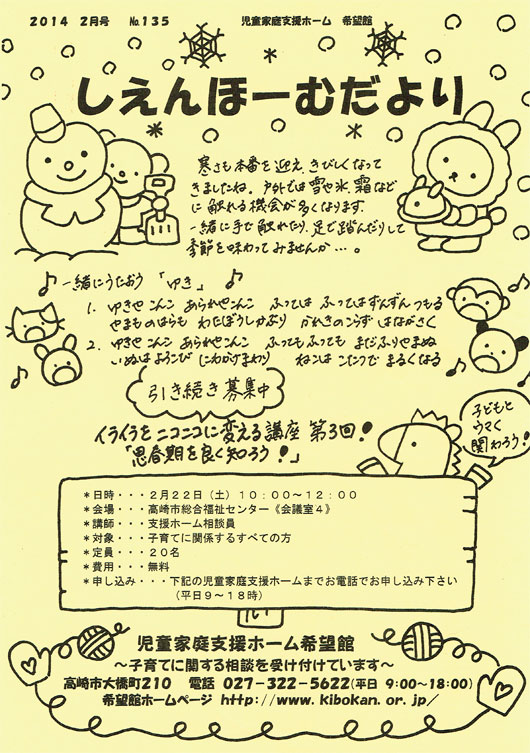 2014 2月号 No.135 児童家庭支援ホーム 希望館
しえんほーむだより
寒さも本番を迎え、きびしくなって
きましたね。戸外では雪や氷、霜など
に触れる機会が多くなります。
一緒に手で触れたり、足で踏んだりして
季節を味わってみませんか…。
♪一緒にうたおう 「ゆき」 ♪
1. ゆきやこんこ あられやこんこ ふっては ふってはずんずん つもる
やまものはらも わたぼうしかぶり かれきのこらず はながさく
2. ゆきやこんこ あられやこんこ ふってもふっても まだふりやまぬ
いぬはよろこび にわかけまわり ねこは こたつで まるくなる
引き続き募集中
イライラをニコニコに変える講座 第3回!
「思春期を良く知ろう!」
子どもと
ウマく
関わろう!
*日時・・・2月22日(土)10:00~12:00
*会場・・・高崎市総合福祉センター《会議室4》
*講師・・・支援ホーム相談員
*対象・・・子育てに関係するすべての方
*定員・・・20名
*費用・・・無料
*申し込み・・・下記の児童家庭支援ホームまでお電話でお申し込み下さい
(平日9~18時)
児童家庭支援ホーム希望館
~子育てに関する相談を受け付けています~
高崎市大橋町210 電話 027-322-5622(平日 9:00~18:00)
希望館ホームページ http://www.kibokan.or.jp/